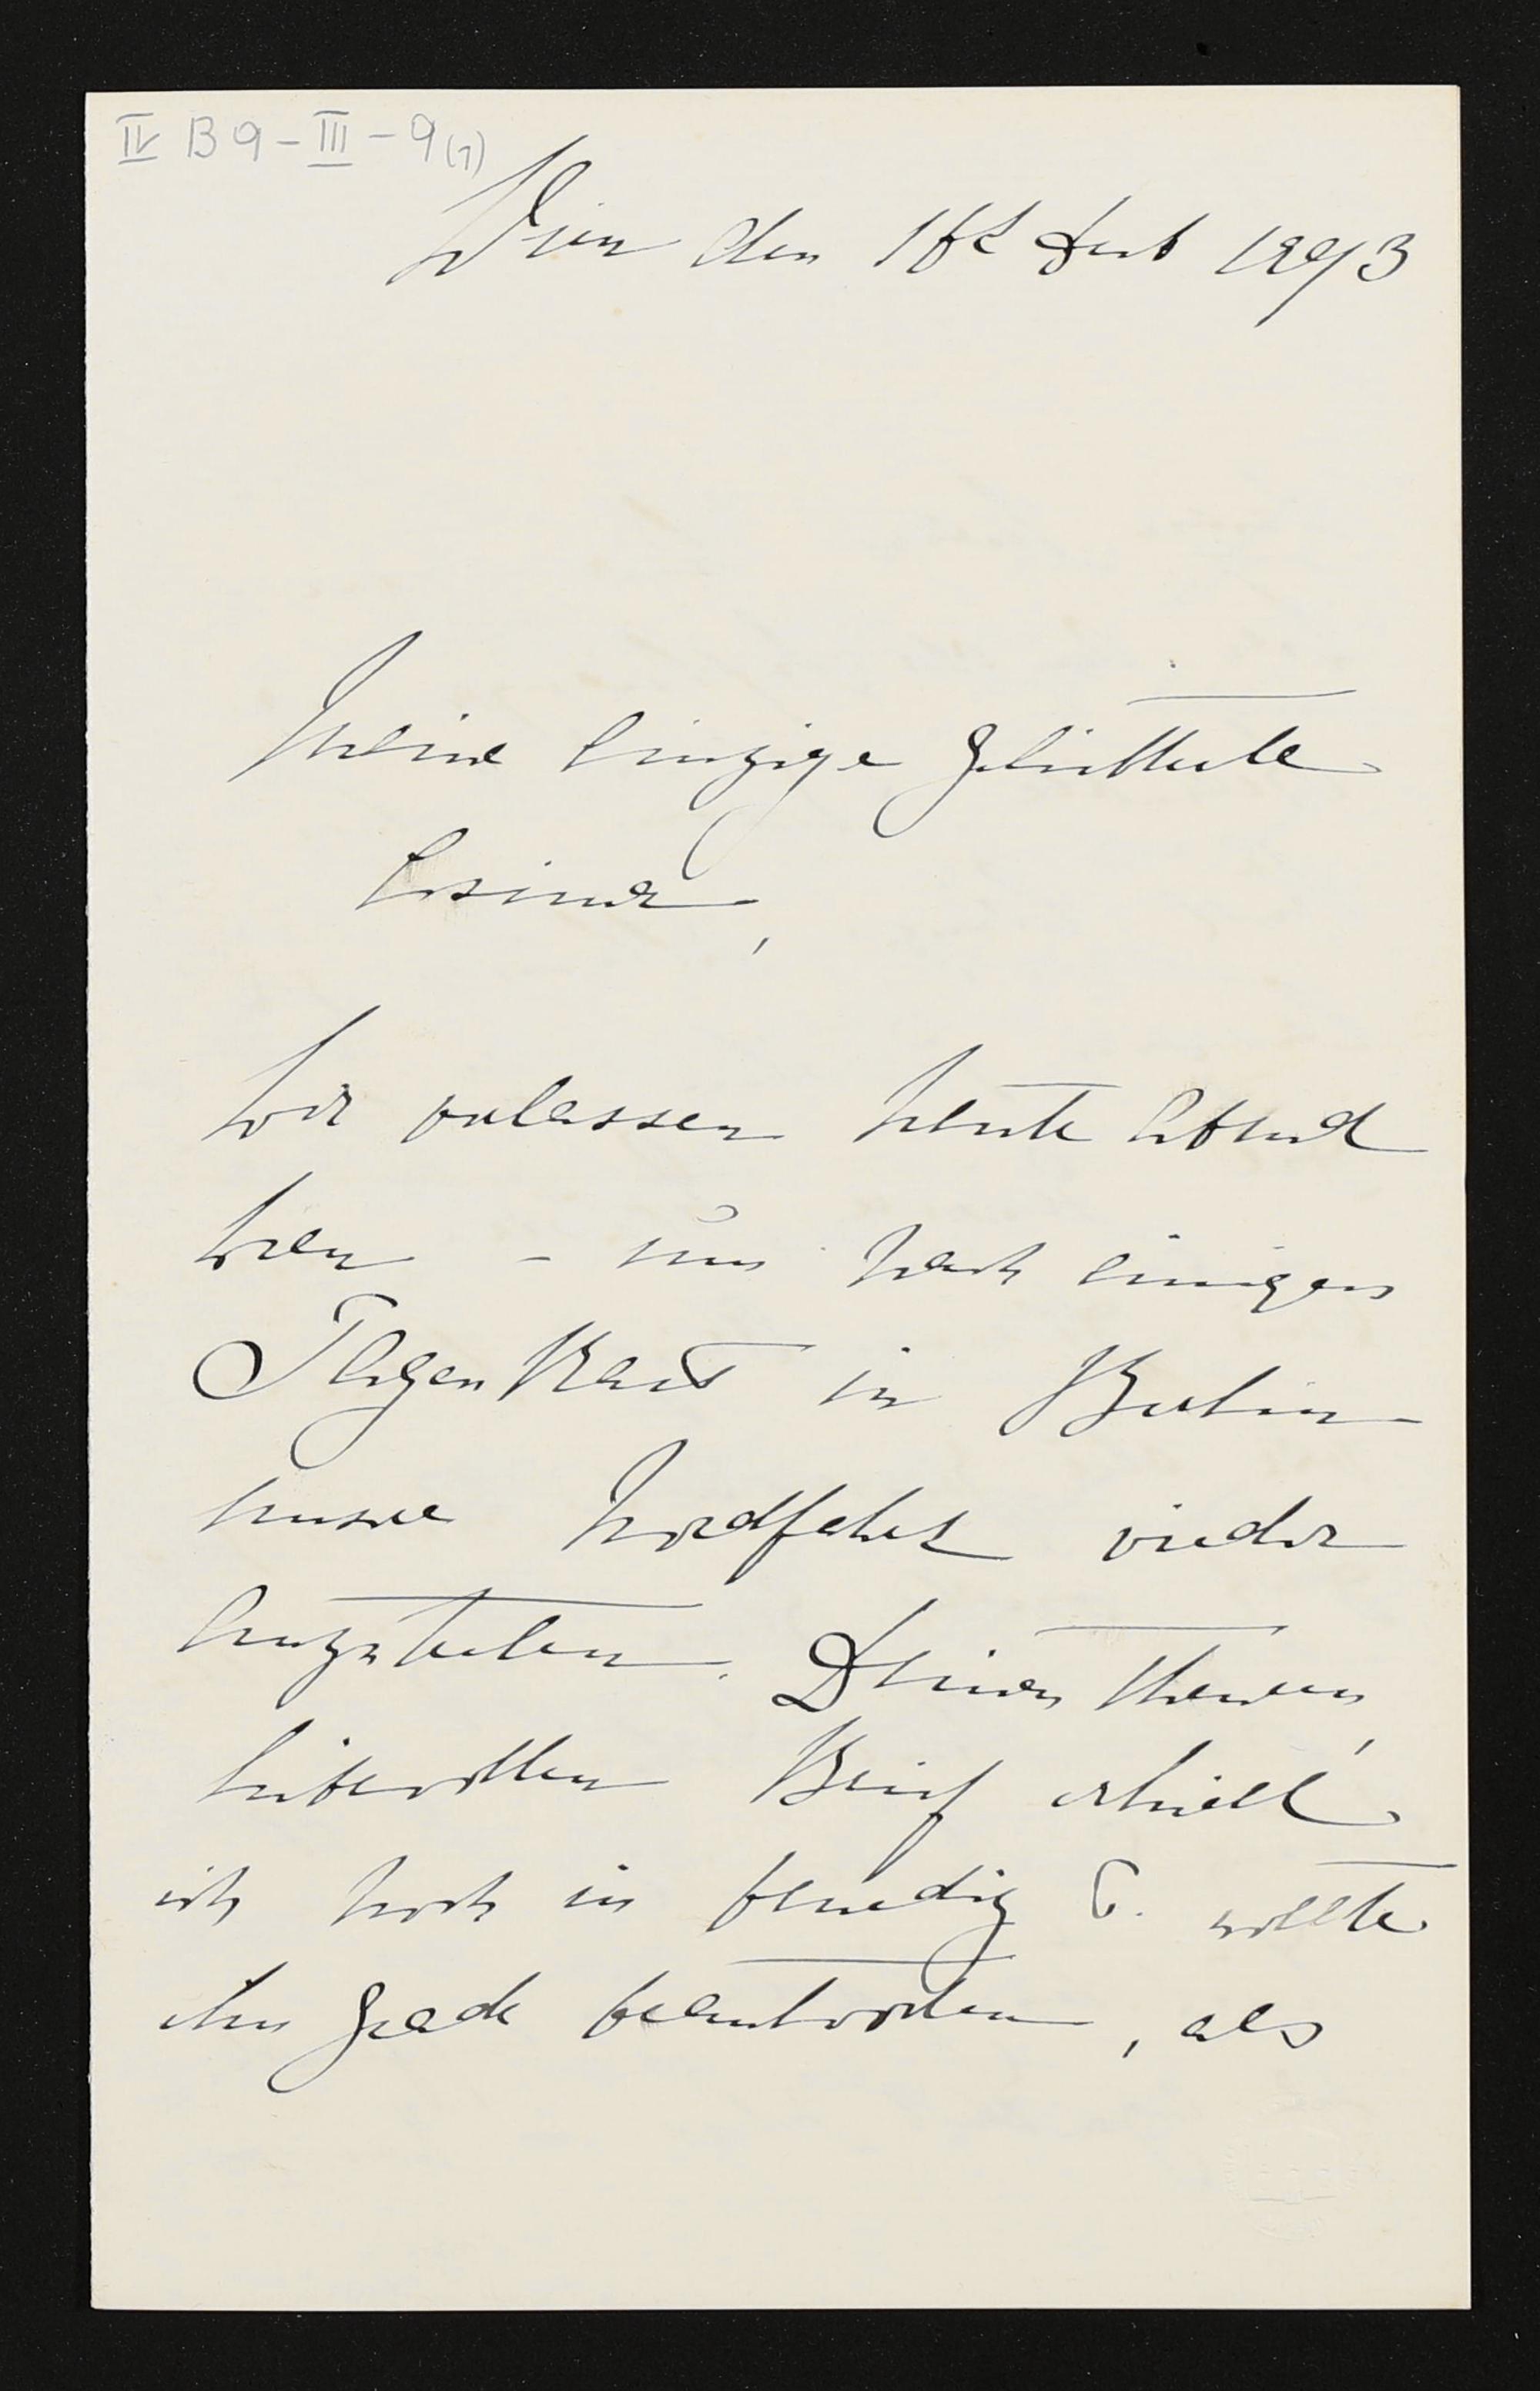 IV B 9 - III - 9 (1)
Wien den 16t Sept 1893
Meine einzige geliebteste
Cosima,
Wir verlassen heute Abend
Wien - um nach einigen
Tagen Rast in Berlin
unsre Nordfahrt wieder
anzutreten. Deinen theuren,
liebevollen Brief erhielt
ich noch in Venedig &. wollte
ihn grade beantworten, als